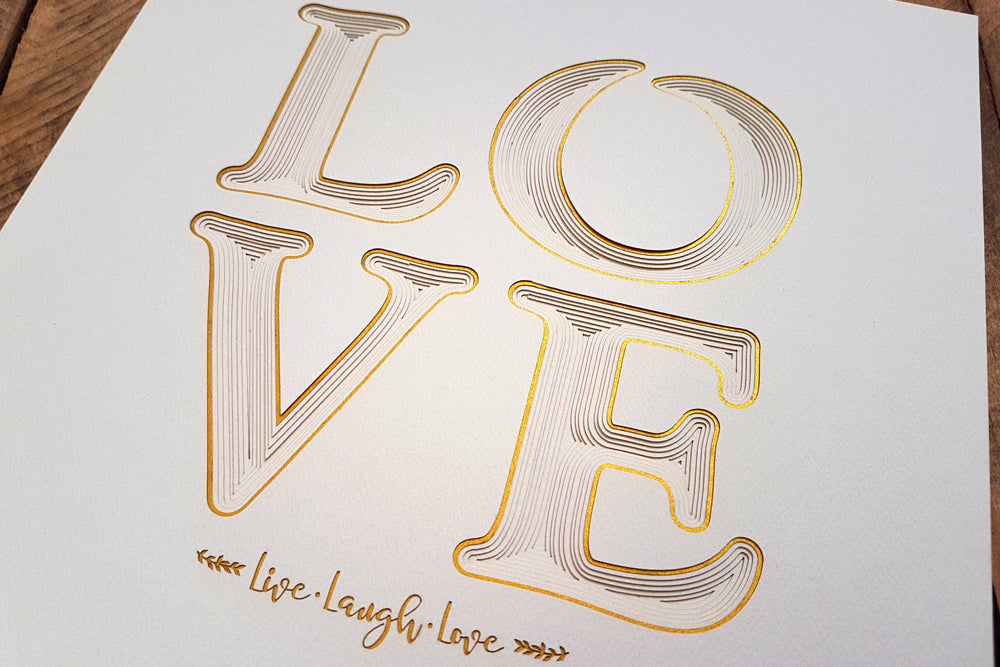 LO
VE
Live·Laugh·Love